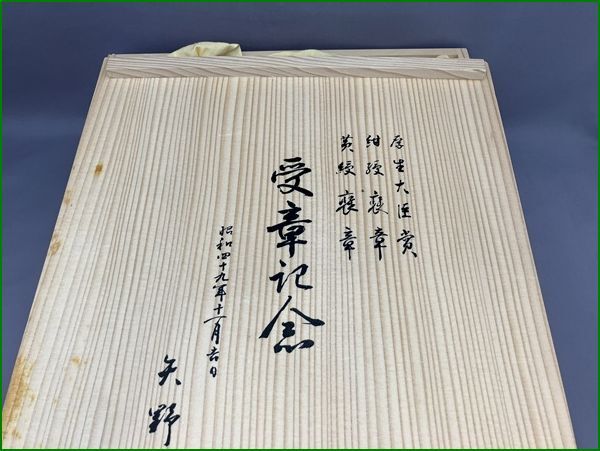 厚生大臣賞
紺綬褒章
黄綬褒章
受章記念
昭和四十九年十一月吉日
矢野